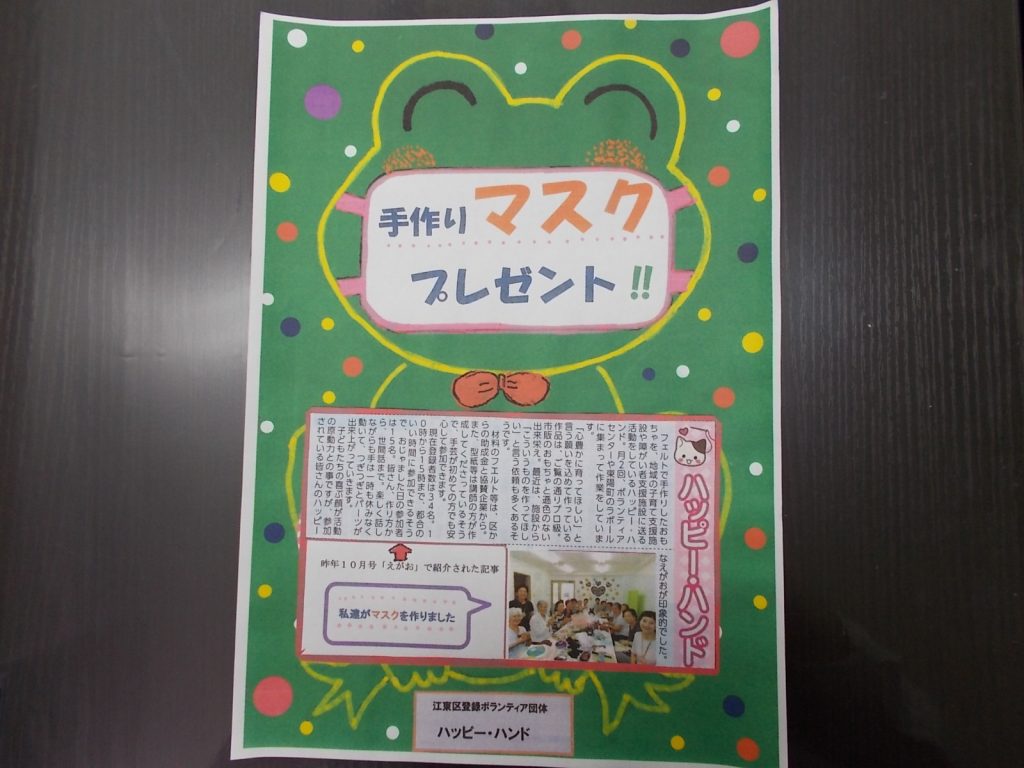 手作りマスク
プレゼント!!
ハッピー・ハンド
フェルトで手作りしたおも
ちゃを、地域の子育て支援施
設や障がい者支援施設に送る
活動をしているハッピー・ハ
ンド。月2回、ボランティア
センターや東陽町のラポール
に集まって作業をしていま
す。
「心豊かに育ってほしい」と
言う願いを込めて作っている
作品は、ご覧の通りプロ級。
市販のおもちゃと遜色のない
出来栄え。最近は、施設から
「こういうものを作ってほし
い」と言う依頼も多くあるそ
うです。
材料のフェルト等は、区か
らの助成金と協賛企業から。
また、型紙等は講師の方が作
成してくださっているそう
で、手芸が初めての方でも安
心して参加できます。
現在登録者数は34名。1
0時から15時まで、都合の
いい時間に参加できるそう
で、おじゃました日の参加者
は15名。皆さん、作り方か
ら、世間話まで、楽しく話し
ながらも手は一時も休みなく
動いて、つぎつぎとパーツが
出来上がっていきます。
子どもたちの喜ぶ顔が活動
の原動力との事ですが、参加
されている皆さんのハッピー
なえがおが印象的でした。
昨年10月号「えがお」で紹介された記事
私達がマスクを作りました
江東区登録ボランティア団体
ハッピー・ハンド